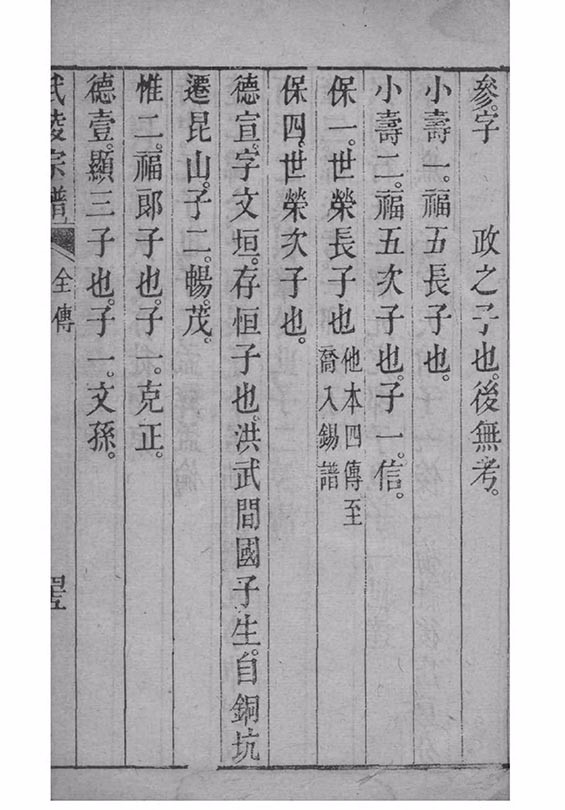 參。字　　　政之子也。後無考。
小壽一。福五長子也。
小壽二。福五次子也。子一。信。
保一。世榮長子也
他本四傳至
喬入錫譜
保四。世榮次子也。
德宣。字文垣。存恒子也。洪武間國子生。自銅坑
遷昆山。子二。暢。茂。
惟二。福郎子也。子一。克正。
德壹。顯三子也。子一。文孫。
武陵宗譜
全傳